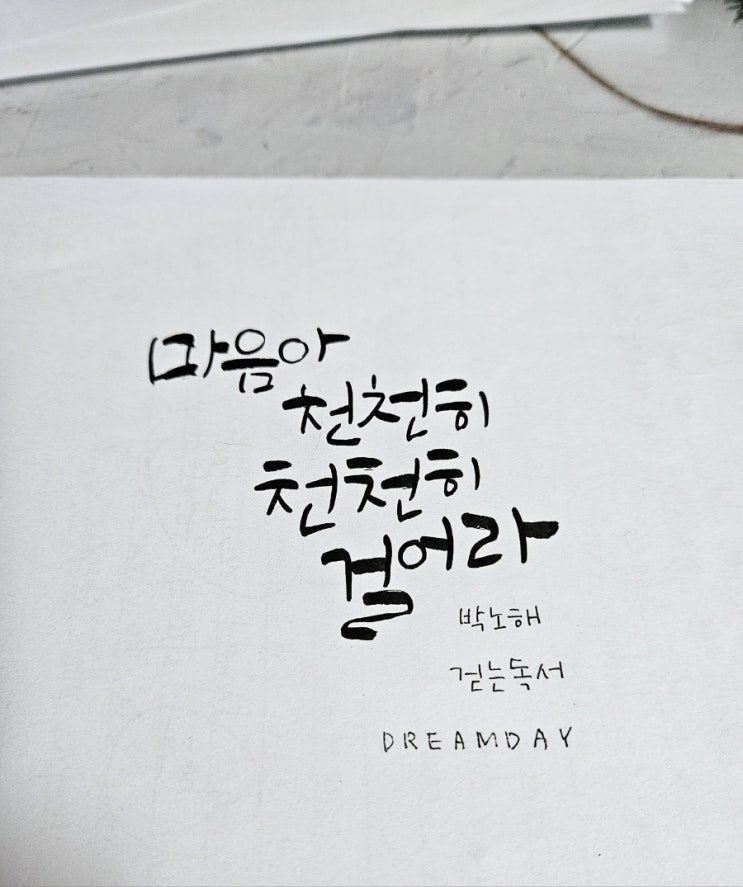 마음아
천천히
천천히
걸어라
박노해
걷는독서
DREAMDAY